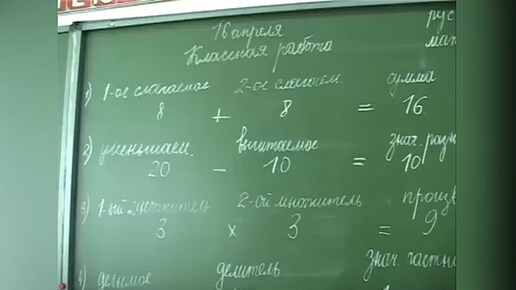 16 апреля
Классная работа
рус
мат
1) 1-ое слагаемое 2-ое слагаем. сумма
8 + 8 = 16
2) уменьшаем. вычитаемое знач. разн
20 - 10 = 10
3) 1-ый множитель 2-ой множитель произв
3 x 3 = 9
4) делимое делитель знач. частн